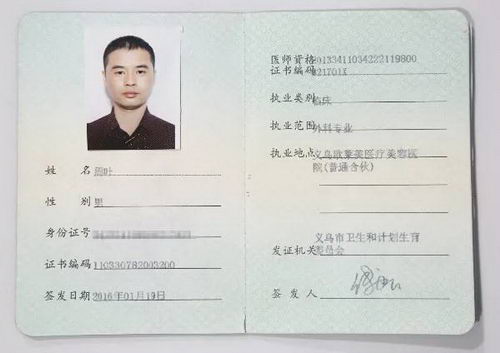 姓 名 周叶
性 别 男
身份证号
证书编码 110330782003200
签发日期 2016年01月19日
医师资格 20133411034222119800
证书编码 821701X
执业类别 临床
执业范围 外科专业
执业地点 义乌欧莱美医疗美容医
院(普通合伙)
义乌市卫生和计划生育
发证机关 委员会
签 发 人